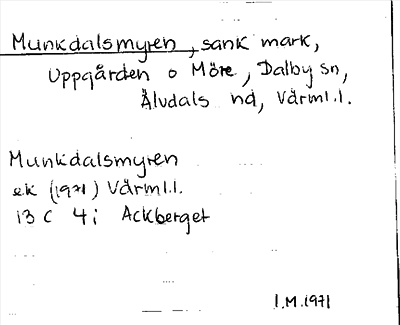 Munkdalsmyren, sank mark,
Uppgården o Möre, Dalby sn,
Älvdals hd, Värml.l.
Munkdalsmyren
ek (1971) Värml.l.
13 C 4 i Ackberget
I.M. 1971